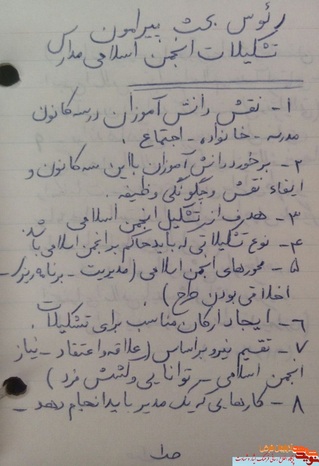 رئوس بحث پیرامون
تشکیلات انجمن اسلامی مدارس
۱- نقش دانش آموزان در سه کانون
مدرسه - خانواده - اجتماع
۲- برخورد دانش آموزان با این سه کانون و
ایفاء نقش و چگونگی وظیفه
۳- هدف از تشکیل انجمن اسلامی
۴- نوع تشکیلاتی که باید حاکم بر انجمن اسلامی باشد
۵- محورهای انجمن اسلامی (مدیریت - برنامه ریزی -
اخلاقی بودن طرح)
۶- ایجاد ارکان مناسب برای تشکیلات
۷- تقسیم نیرو بر اساس (علاقه و اعتقاد - نیاز
انجمن اسلامی - توانایی و کشش فرد)
۸- کارهایی که یک مدیر باید انجام دهد -